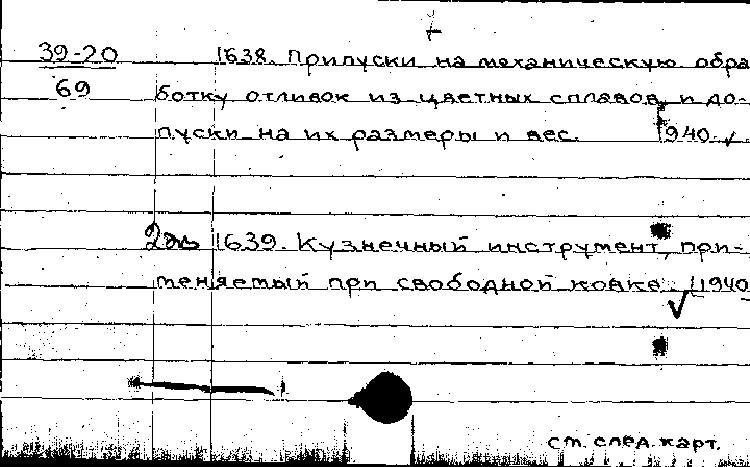 39-20 1638. Припуски на механическую обра
69 ботку отливок из цветных сплавов и до-
пуски на их размеры и вес. 1940.
2 экз 1639. Кузнечный инструмент, при-
меняемый при свободной ковке. 1940
см. след. карт.